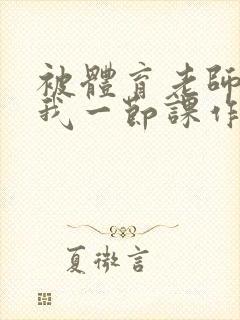 被體育老師
我一節課作
夏微言